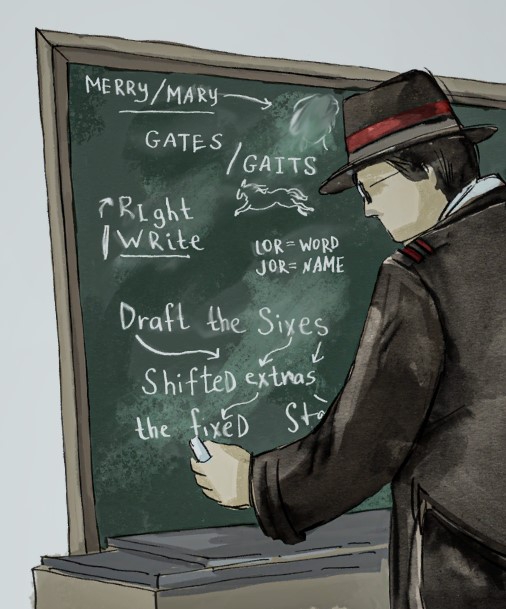 MERRY/MARY
GATES
/GAITS
RIght
WRite
LOR=WORD
JOR=NAME
Draft the Sixes
ShifteD extras
the fixeD